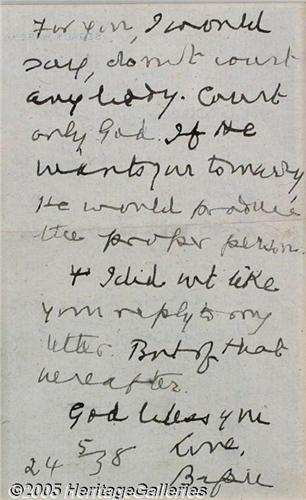 For you, I would
say, don't court
anybody. Court
only God. If He
wants you to marry,
He would produce
the proper person.
+ I did not like
your reply to my
letter. But of that
hereafter.
God bless you
Love,
24 5/38
Bapu
©2005 HeritageGalleries